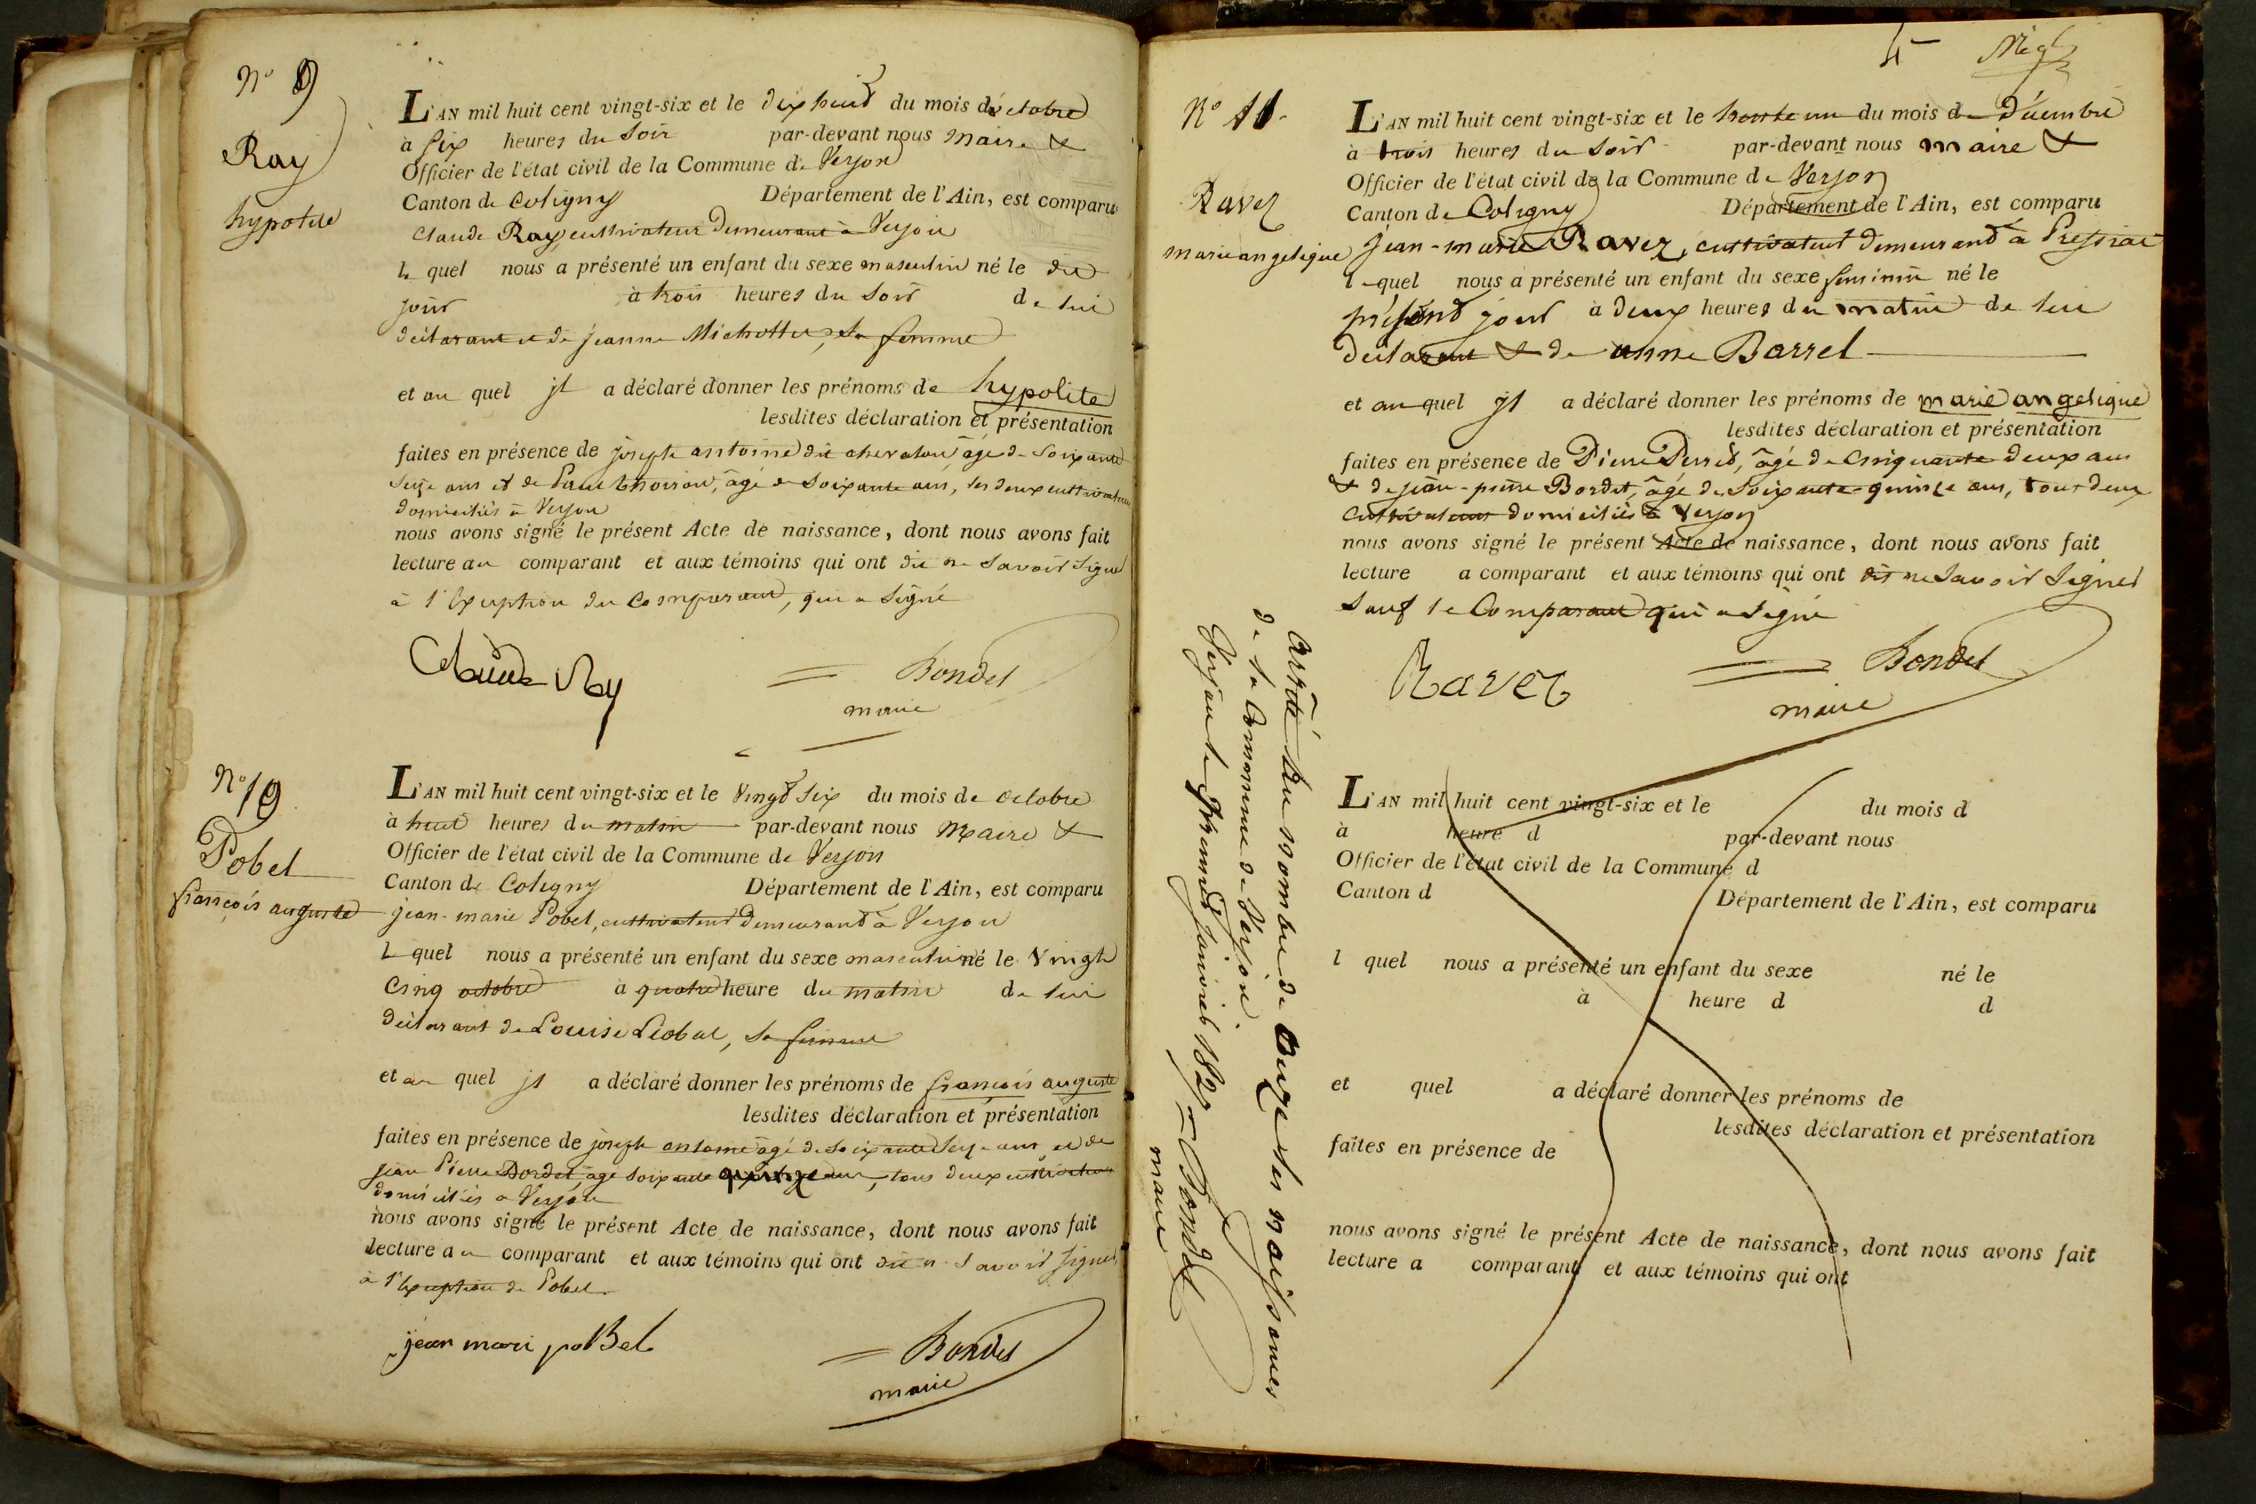 N° 9
Ray
hypolite
L'AN mil huit cent vingt-six et le dix huit du mois d'octobre
à six heures du soir par-devant nous maire &
Officier de l'état civil de la Commune de Verjon
Canton de Coligny Département de l'Ain, est comparu
Claude Ray, cultivateur demeurant à Verjon
le quel nous a présenté un enfant du sexe masculin né le dit
jour à trois heures du soir de lui
déclarant et de jeanne Michollet, sa femme
et au quel jl a déclaré donner les prénoms de hypolite
lesdites déclaration et présentation
faites en présence de joseph antoine dit chevalon âgé de soixante
seize ans et de Paul thoiron, âgé de soixante ans, les deux cultivateurs
domiciliés à Verjon
nous avons signé le présent Acte de naissance, dont nous avons fait
lecture au comparant et aux témoins qui ont dit ne savoir signer
à l'exception du comparant, qui a signé
Claude Ray
Bondet
maire
N° 10
Pobel
françois auguste
L'AN mil huit cent vingt-six et le vingt six du mois de octobre
à huit heures du matin par-devant nous Maire &
Officier de l'état civil de la Commune de Verjon
Canton de Coligny Département de l'Ain, est comparu
jean-marie Pobel, cultivateur demeurant à Verjon
le quel nous a présenté un enfant du sexe masculin né le vingt
cinq octobre à quatre heure du matin de lui
déclarant de Louise Léobal, sa femme
et au quel jl a déclaré donner les prénoms de françois auguste
lesdites déclaration et présentation
faites en présence de joseph antoine âgé de soixante seize ans et de
jean Pierre Bordet, âgé soixante quinze ans, tous deux cultivateurs
domiciliés à Verjon
nous avons signé le présent Acte de naissance, dont nous avons fait
lecture au comparant et aux témoins qui ont dit ne savoir signer
à l'exception de Pobel
jean mari poBel
Bondet
maire
4
N° 11.
Ravez
marie angelique
L'AN mil huit cent vingt-six et le trente un du mois de Décembre
à trois heures du soir par-devant nous maire &
Officier de l'état civil de la Commune de Verjon
Canton de Coligny Département de l'Ain, est comparu
jean-marie Ravez, cultivateur demeurant à Pressiat
le quel nous a présenté un enfant du sexe feminin né le
présent jour à deux heures du matin de lui
déclarant & de anne Barrel
et au quel jl a déclaré donner les prénoms de marie angelique
lesdites déclaration et présentation
faites en présence de Pierre Perret, âgé de cinquante deux ans
& de jean-pierre Bordet, âgé de soixante-quinze ans, tous deux
cultivateurs domiciliés à Verjon
nous avons signé le présent Acte de naissance, dont nous avons fait
lecture a comparant et aux témoins qui ont dit ne savoir signer
sauf le Comparant qui a signé
Ravez
Bondet
maire
Arrêté au nombre de Onze les naissances
de la Commune de Verjon.
Verjon le premier janvier 1827
Bondet
maire
L'AN mil huit cent vingt-six et le du mois d
à heure d par-devant nous
Officier de l'état civil de la Commune d
Canton d Département de l'Ain, est comparu
l quel nous a présenté un enfant du sexe né le
à heure d d
et quel a déclaré donner les prénoms de
lesdites déclaration et présentation
faites en présence de
nous avons signé le présent Acte de naissance, dont nous avons fait
lecture a comparant et aux témoins qui ont